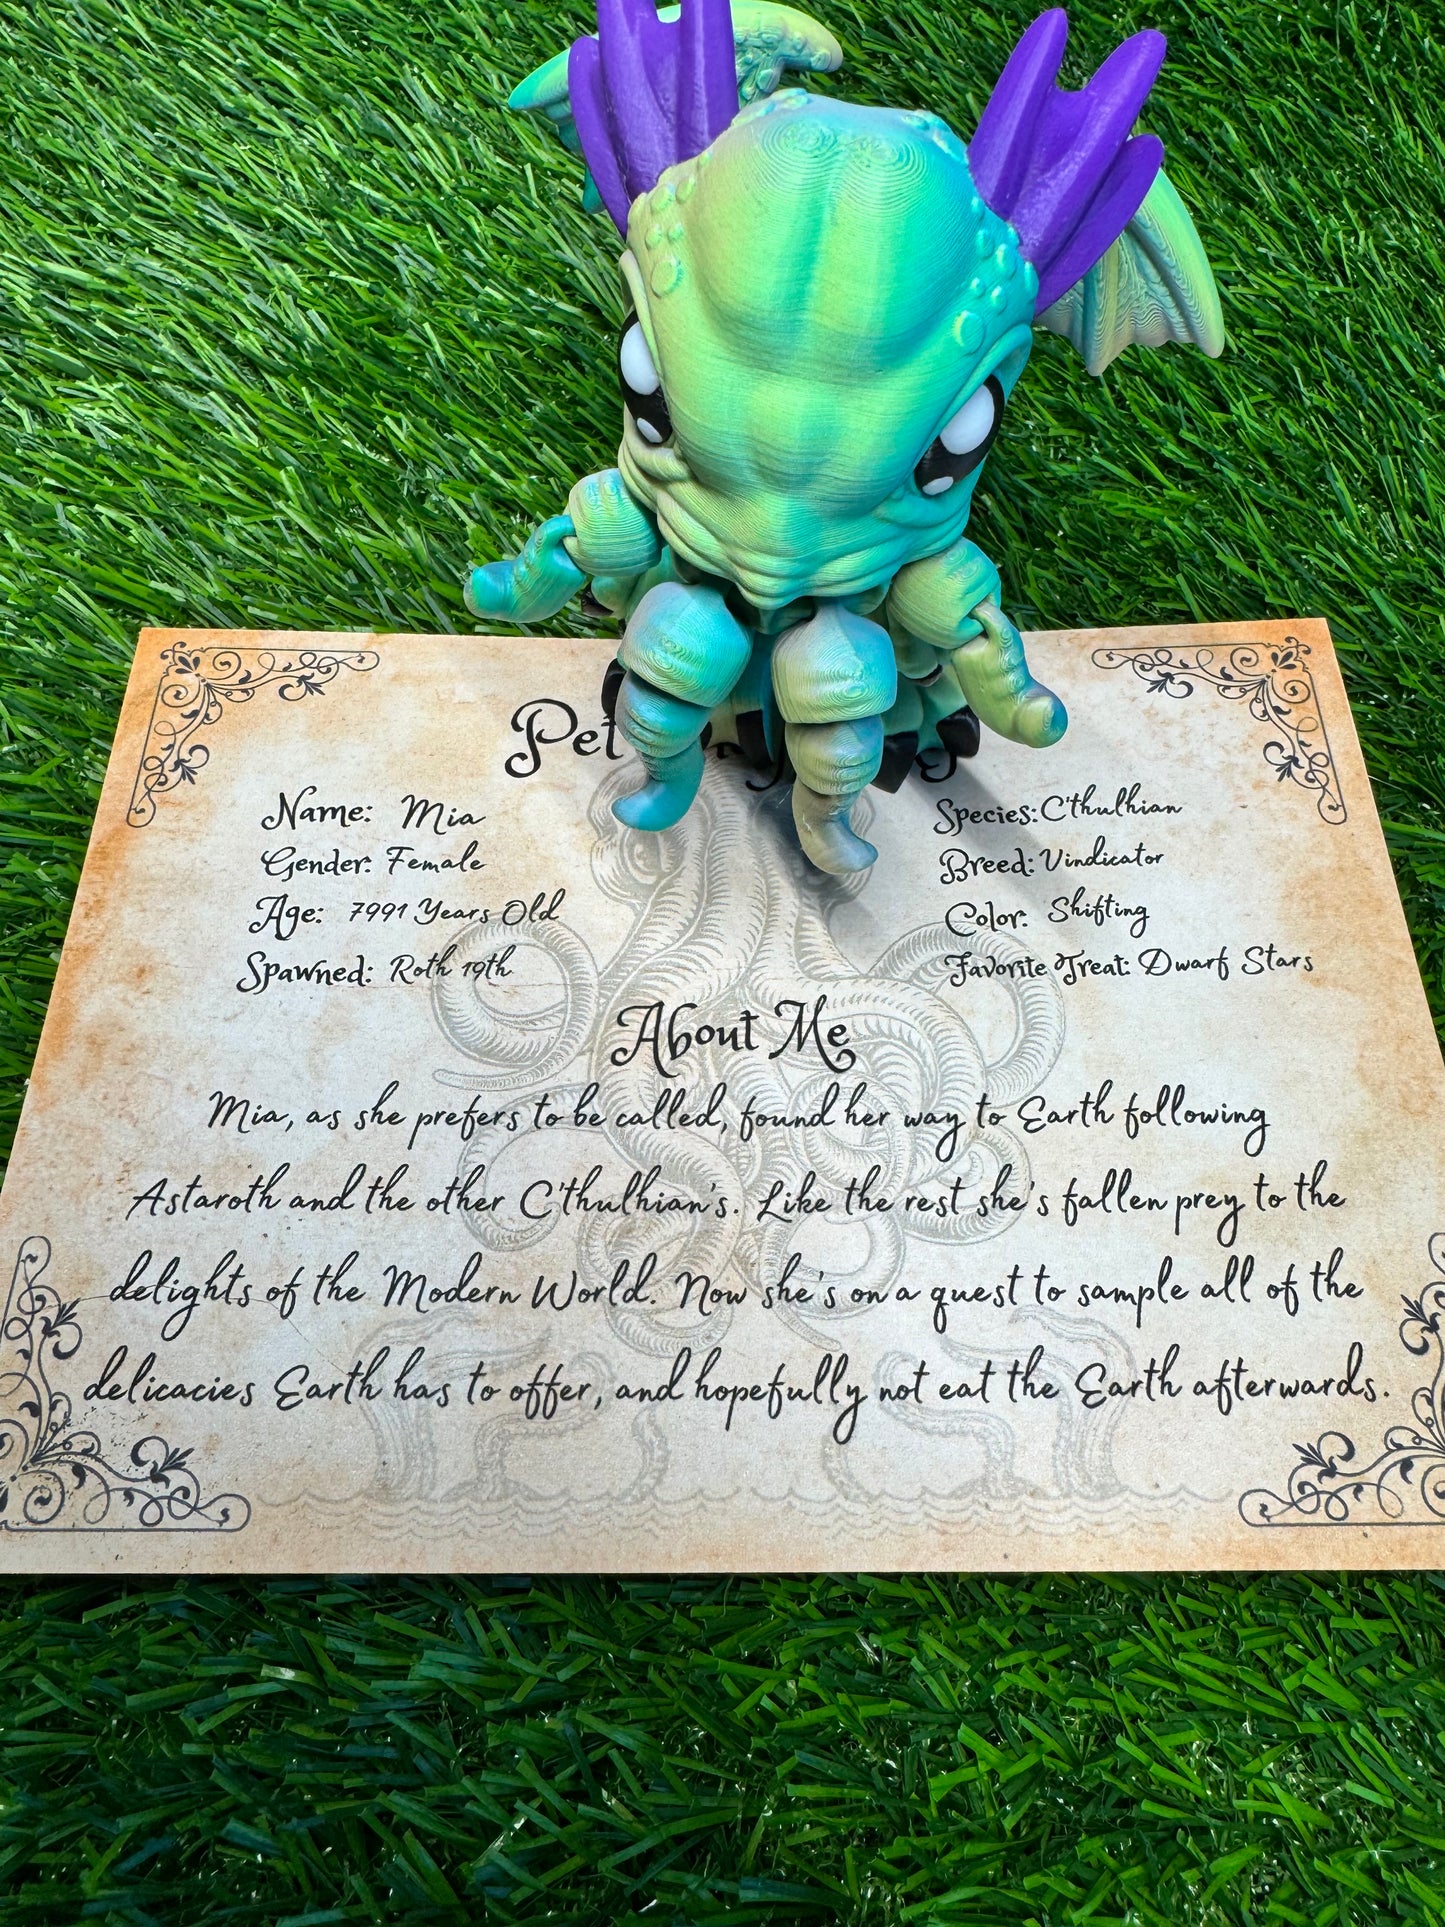 Pet
Name: Mia
Gender: Female
Age: 7991 Years Old
Spawned: Roth 19th
Species: C'thulhian
Breed: Vindicator
Color: Shifting
Favorite Treat: Dwarf Stars
About Me
Mia, as she prefers to be called, found her way to Earth following
Astaroth and the other C'thulhian's. Like the rest she's fallen prey to the
delights of the Modern World. Now she's on a quest to sample all of the
delicacies Earth has to offer, and hopefully not eat the Earth afterwards.